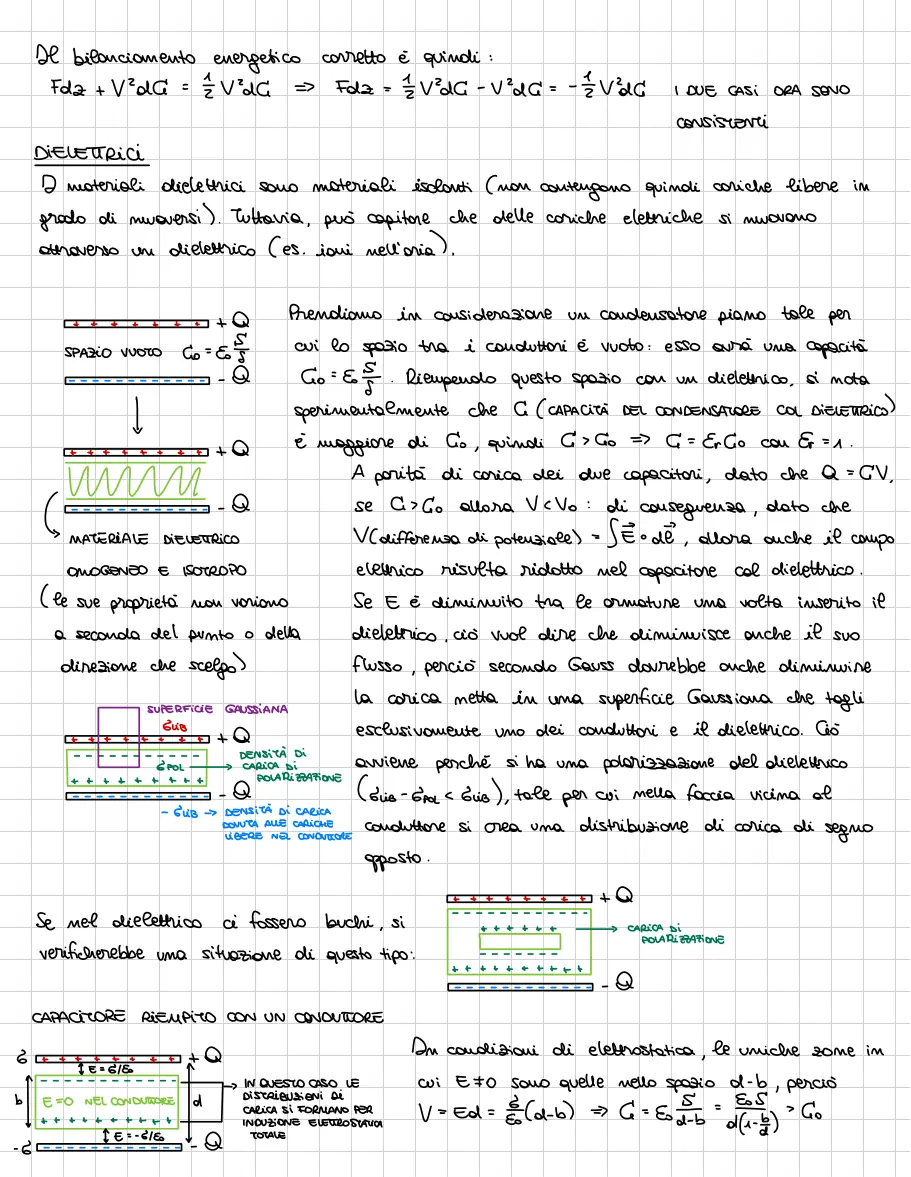 Il bilanciamento energetico corretto è quindi:
Fdz + V²dC = ½ V²dC ⇒ Fdz = ½ V²dC - V²dC = -½ V²dC I DUE CASI ORA SONO
CONSISTENTI
DIELETTRICI
I materiali dielettrici sono materiali isolanti (non contengono quindi cariche libere in
grado di muoversi). Tuttavia, può capitare che delle cariche elettriche si muovano
attraverso un dielettrico (es. ioni nell'aria).
+ + + + + + + + Q
SPAZIO VUOTO C₀ = ε₀ S/δ
- Q
+ Q
- Q
MATERIALE DIELETTRICO
OMOGENEO E ISOTROPO
(le sue proprietà non variano
a seconda del punto o della
direzione che scelgo)
Prendiamo in considerazione un condensatore piano tale per
cui lo spazio tra i conduttori è vuoto: esso avrà una capacità
C₀ = ε₀ S/δ. Riempendo questo spazio con un dielettrico, si nota
sperimentalmente che C (CAPACITÀ DEL CONDENSATORE COL DIELETTRICO)
è maggiore di C₀, quindi C > C₀ ⇒ C = εrC₀ con εr = 1.
A parità di carica dei due capacitori, dato che Q = CV,
se C > C₀ allora V < V₀: di conseguenza, dato che
V(differenza di potenziale) = ∫E⃗ • dl⃗, allora anche il campo
elettrico risulta ridotto nel capacitore col dielettrico.
Se E è diminuito tra le armature una volta inserito il
dielettrico, ciò vuol dire che diminuisce anche il suo
flusso, perciò secondo Gauss dovrebbe anche diminuire
la carica netta in una superficie Gaussiana che tagli
esclusivamente uno dei conduttori e il dielettrico. Ciò
avviene perché si ha una polarizzazione del dielettrico
(σLIB - σPOL < σLIB), tale per cui nella faccia vicina al
conduttore si crea una distribuzione di carica di segno
opposto.
SUPERFICIE GAUSSIANA
σLIB
+ Q
σPOL
DENSITÀ DI
CARICA DI
POLARIZZAZIONE
- Q
- σLIB → DENSITÀ DI CARICA
DOVUTA ALLE CARICHE
LIBERE NEL CONDUTTORE
Se nel dielettrico ci fossero buchi, si
verificherebbe una situazione di questo tipo:
+ Q
CARICA DI
POLARIZZAZIONE
- Q
CAPACITORE RIEMPITO CON UN CONDUTTORE
σ + Q
E = σ/ε₀
b E = 0 NEL CONDUTTORE d
E = -σ/ε₀
-σ - Q
IN QUESTO CASO LE
DISTRIBUZIONI DI
CARICA SI FORMANO PER
INDUZIONE ELETTROSTATICA
TOTALE
In condizioni di elettrostatica, le uniche zone in
cui E ≠ 0 sono quelle nello spazio d-b, perciò
V = Ed = σ/ε₀ (d-b) ⇒ C = ε₀ S/(d-b) = ε₀S/(d(1-b/d)) > C₀